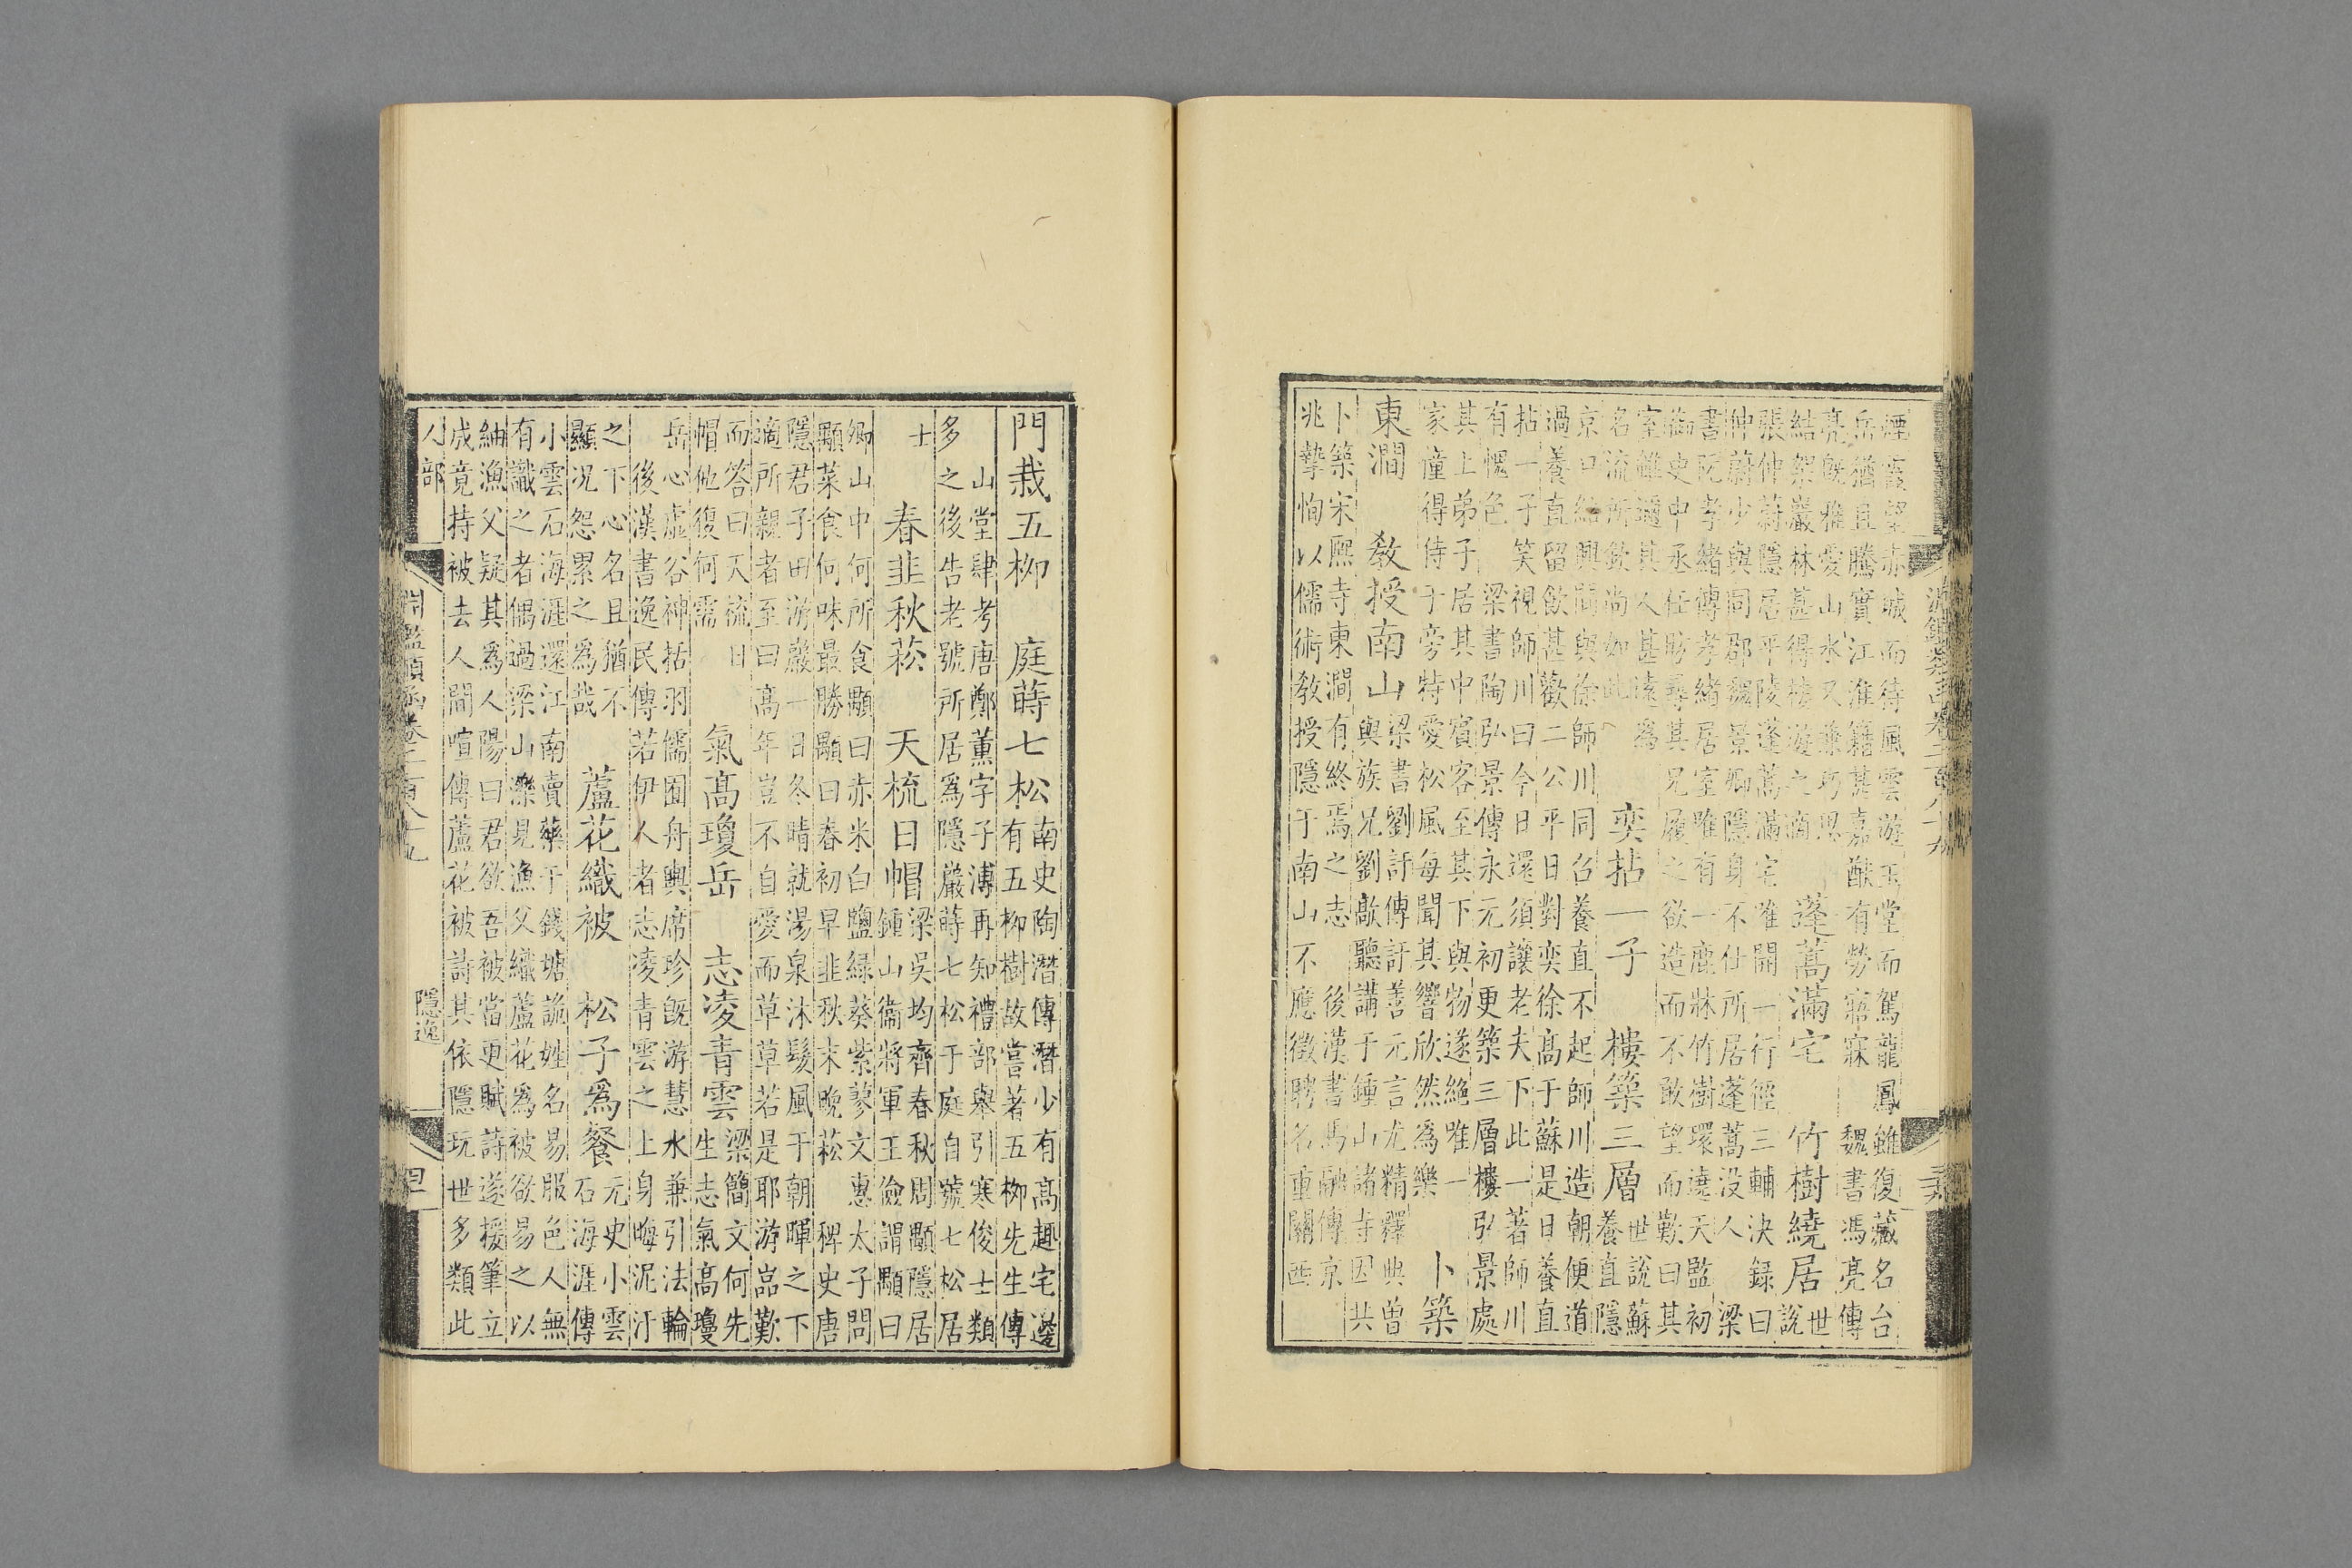 淵鑑類函卷二百八十九
煙霞望赤城而待風雲游玉堂而駕龍鳳雖復藏名台
岳猶且騰實江淮籍甚嘉猷有勞寤寐 魏書馮亮傳
亮旣雅愛山水又兼巧思
結架巖林甚得棲游之適 蓬蒿滿宅 竹樹繞居 世說
張仲蔚隱居平陵蓬蒿滿宅唯開一行徑 三輔決録曰
仲蔚少與同郡魏景卿隱身不仕所居蓬蒿没人 梁
書阮孝緒傳孝緒居室唯有一鹿牀竹樹環遶天監初
御史中丞任昉尋其兄履之欲造而不敢望而歎曰其
室雖邇其人甚遠爲
名流所欽尚如此 奕拈一子 樓築三層 世說蘇養直隱
京口紹興間與徐師川同召養直不起師川造朝便道
過養直留飲甚歡二公平日對奕徐高于蘇是日養直
拈一子笑視師川曰今日還須讓老夫下此一著師川
有愧色 梁書陶弘景傳永元初更築三層樓弘景處
其上弟子居其中賓客至其下與物遂絶唯一
家僮得侍于旁特愛松風每聞其響欣然爲樂 卜築
東澗 敎授南山 梁書劉訏傳訏善元言尤精釋典曾
與族兄劉歊聽講于鍾山諸寺因共
卜築宋熙寺東澗有終焉之志 後漢書馬融傳京
兆摯恂以儒術敎授隱于南山不應徵聘名重關西
門栽五柳 庭蒔七松 南史陶潛傳潛少有高趣宅邊
有五柳樹故嘗著五柳先生傳
山堂肆考唐鄭薰字子溥再知禮部舉引寒俊士類
多之後告老號所居爲隱巖蒔七松于庭自號七松居
士 春韭秋菘 天梳日帽 梁吳均齊春秋周顒隱居
鍾山衞將軍王儉謂顒曰
卿山中何所食顒曰赤米白鹽緑葵紫蓼文惠太子問
顒菜食何味最勝顒曰春初早韭秋末晚菘 稗史唐
隱君子田游巖一日冬晴就湯泉沐髮風于朝暉之下
適所親者至曰高年豈不自愛而草草若是耶游嵓歎
而答曰天梳日
帽他復何需 氣高瓊岳 志凌青雲 梁簡文何先
生志氣高瓊
岳心虛谷神拈羽儒囿舟輿席珍旣游慧水兼引法輪
後漢書逸民傳若伊人者志凌青雲之上身晦泥汙
之下心名且猶不
顯况怨累之爲哉 蘆花織被 松子爲餐 元史小雲
石海涯傳
小雲石海涯還江南賣藥于錢塘詭姓名易服色人無
有識之者偶過梁山濼見漁父織蘆花爲被欲易之以
紬漁父疑其爲人陽曰君欲吾被當更賦詩遂援筆立
成竟持被去人間喧傳蘆花被詩其依隱玩世多類此
人部
淵鑑類函卷二百八十九
隱逸